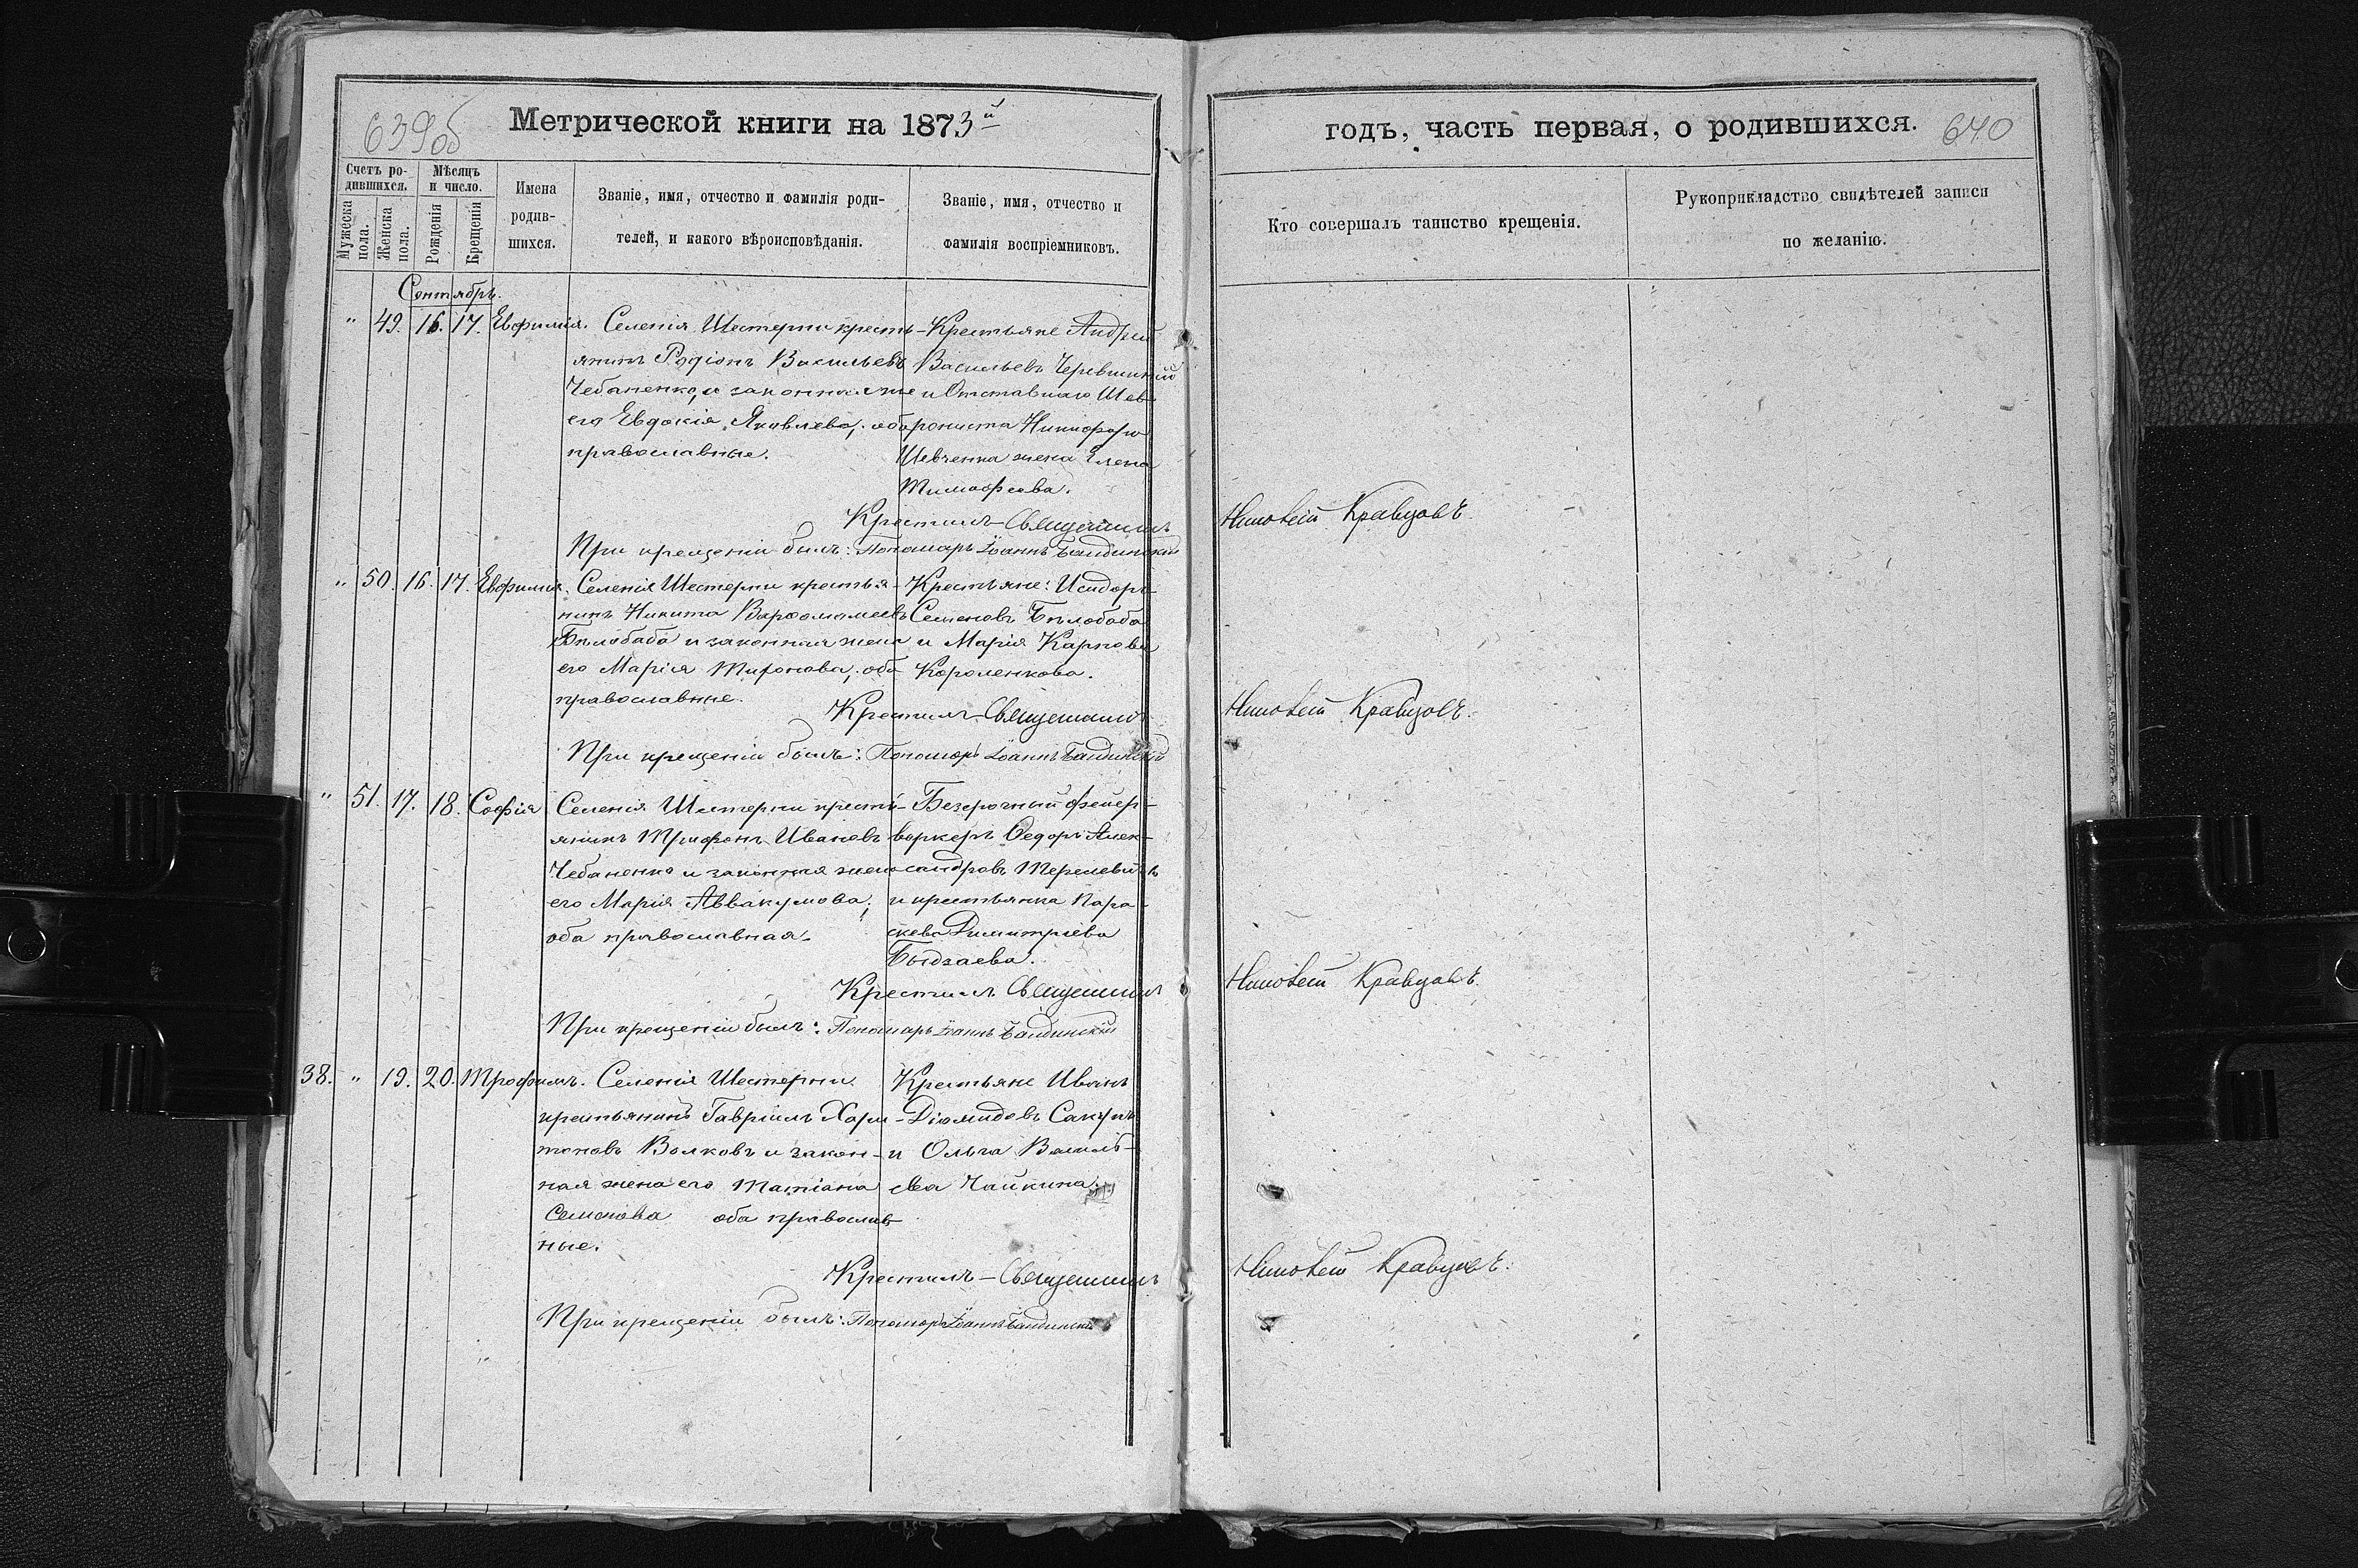 639об
Метрической книги на 1873й
годъ, часть первая, о родившихся.
640
Счетъ родившихся.
Мужеска пола.
Женска пола.
Мѣсяцъ и число.
Рожденія
Крещенія
Имена родившихся.
Званіе, имя, отчество и фамилія роди-
телей, и какого вѣроисповѣданія.
Званіе, имя, отчество и
фамилія воспріемниковъ.
Кто совершалъ таинство крещенія.
Рукоприкладство свидѣтелей записи
по желанію.
Сентябрь.
" 49. 16. 17. Евфимія.
Селенія Шестерни кресть-
янинъ Родіонъ Васильевъ
Чебаненко, и законная же
его Евдокія Яковлева; оба
православные.
Крестьяне Андрей
Васильевъ
и Отставнаго Шев
Никифора
Шевченка жена Елена
Тимофеева.
Крестилъ Священникъ
Кравцовъ
При крещеніи былъ: Пономарь Іоаннъ
" 50. 16. 17. Евфимія.
Селенія Шестерни крестья-
нинъ Никита Варфоломеевъ
Бѣлобаба и законная жена
его Марія Миронова; оба
православные.
Крестьяне: Исидоръ
Семеновъ Бѣлобаба
и Марія Карпова
Короленкова.
Крестилъ Священникъ
Кравцовъ.
При крещеніи былъ: Пономарь Іоаннъ
" 51. 17. 18. Софія
Селенія Шестерни кресть-
янинъ Трифонъ Ивановъ
Чебаненко и законная жена
его Марія Аввакумова;
оба православная.
Безсрочный фейер-
веркеръ Ѳедоръ Алек-
сандровъ
и крестьянка Пара-
скева Димитріева
Крестилъ Священникъ
Кравцовъ.
При крещеніи былъ: Пономарь Іоаннъ
38. " 19. 20. Трофимъ.
Селенія Шестерни
крестьянинъ Гавріилъ Хари-
тоновъ Волковъ и закон-
ная жена его Татіана
Семенова оба православ-
ные.
Крестьяне Иванъ
Діомидовъ
и Ольга Василь-
ева Чайкина.
Крестилъ Священникъ
Кравцовъ.
При крещеніи былъ: Пономарь Іоаннъ